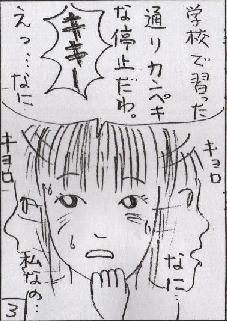 学校で習った
通りカンペキ
な停止だわ。
キキー
えっ…なに
キョロ
キョロ
なに…
私なの…
3